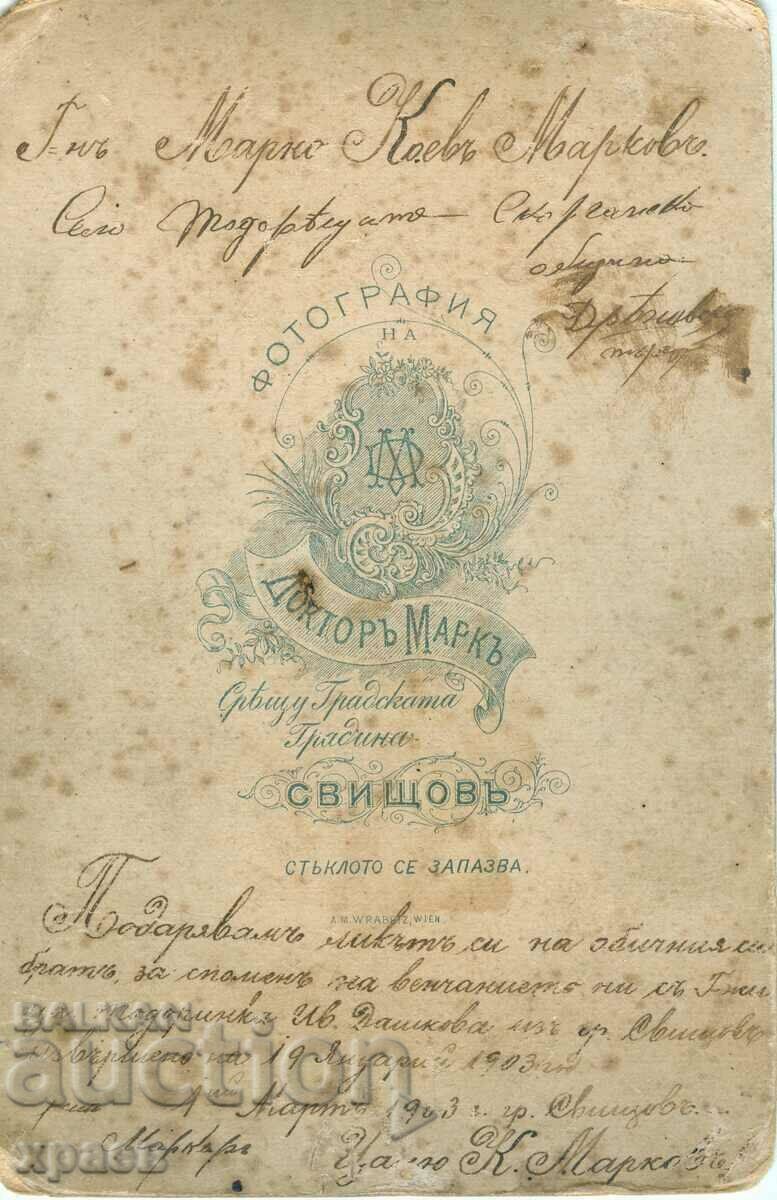 Г-нъ Марко Коевъ Марковъ.
Село Тодорѣците Скорганско
община
ФОТОГРАФИЯ
НА
ДОКТОРЪ МАРКЪ
Срѣщу Градската
Градина
СВИЩОВЪ
СТЪКЛОТО СЕ ЗАПАЗВА.
A.M. WRABETZ, WIEN.
Подарявамъ ликътъ си на обичния си
братъ, за споменъ на венчанието ни съ
Тодоринка Ив. Дашкова изъ гр. Свищовъ
извършено на 19 Януарий 1903 год
1 Мартъ 1903 г. гр. Свищовъ.
К. Марковъ
BALKAN
auction
храев